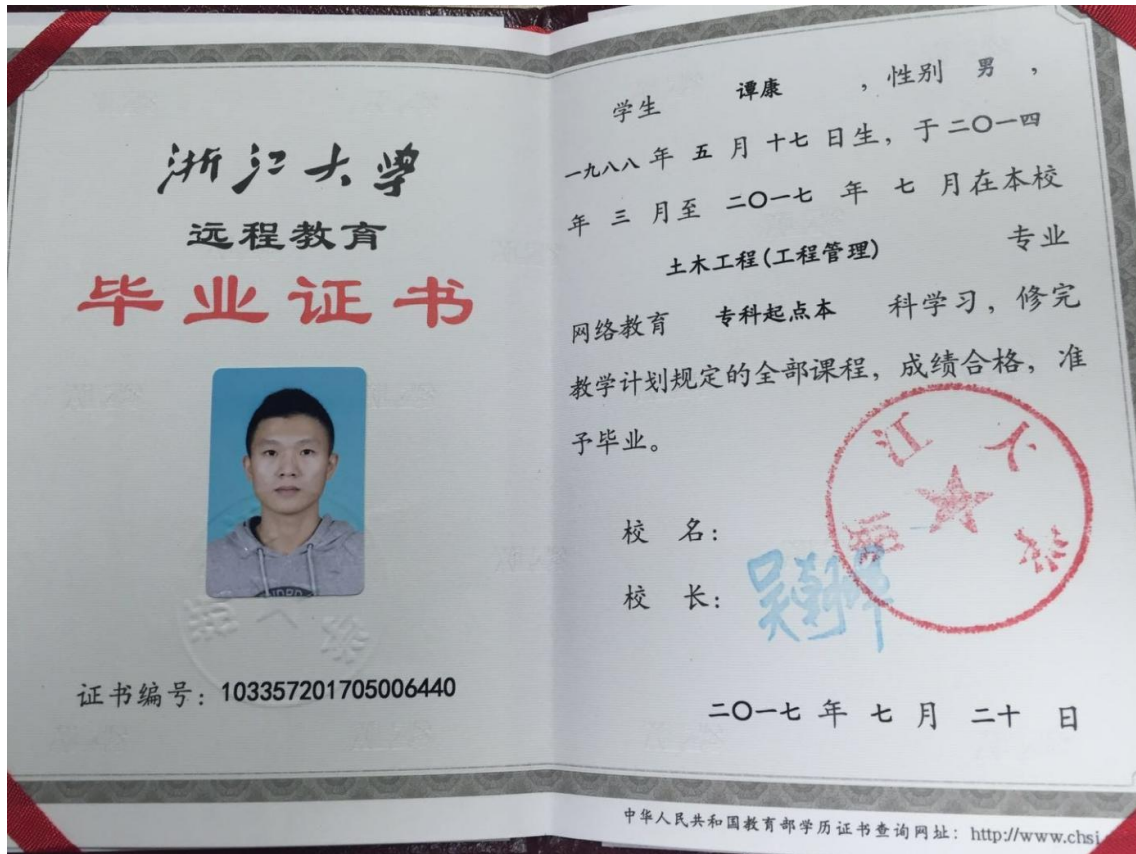 浙江大学
远程教育
毕业证书
证书编号：103357201705006440
学生 谭康 ，性别 男 ，
一九八八 年 五 月 十七 日生，于 二〇一四
年 三 月至 二〇一七 年 七 月在本校
土木工程(工程管理) 专业
网络教育 专科起点本 科学习，修完
教学计划规定的全部课程，成绩合格，准
予毕业。
校 名：
校 长：
二〇一七 年 七 月 二十 日
中华人民共和国教育部学历证书查询网址：http://www.chsi